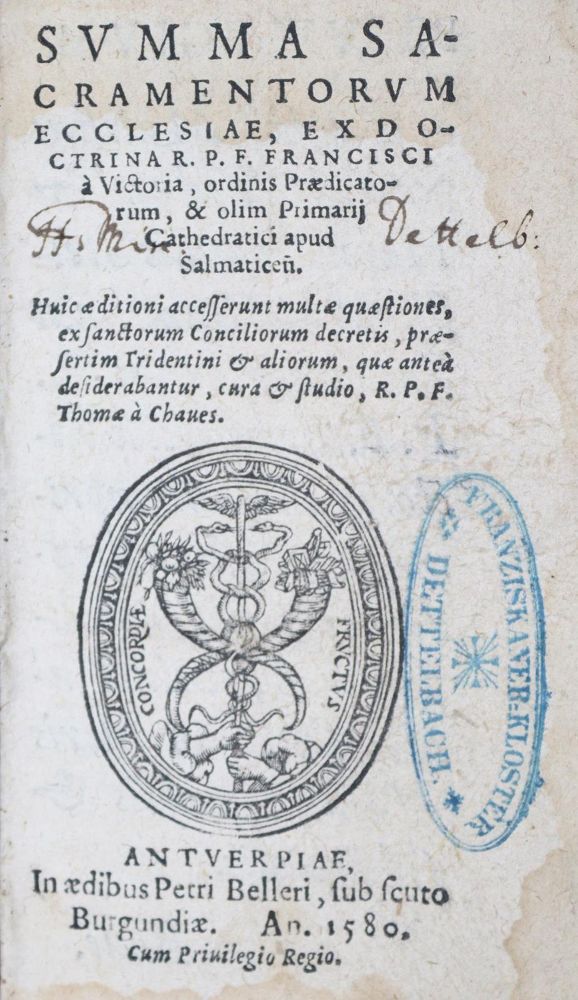 SVMMA SA-
CRAMENTORVM
ECCLESIAE, EX DO-
CTRINA R. P. F. FRANCISCI
à Victoria, ordinis Prædicato-
rum, & olim Primarij
Cathedratici apud
Salmaticeñ.
Dettelb:
Huic æditioni accesserunt multæ quæstiones,
ex sanctorum Conciliorum decretis, præ-
sertim Tridentini & aliorum, quæ anteà
desiderabantur, cura & studio, R. P. F.
Thomæ à Chaues.
CONCORDIÆ FRVCTVS
FRANZISKANER-KLOSTER
DETTELBACH.
ANTVERPIAE,
In ædibus Petri Belleri, sub scuto
Burgundiæ. An. 1580.
Cum Priuilegio Regio.